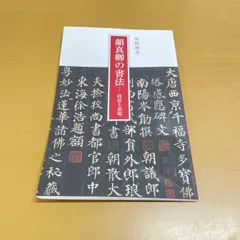 顔真卿の書法
大唐西京千福寺多寶佛
塔感應碑文
南陽岑勛撰朝議郎
判尚書武部員外郎琅
顏真卿書朝散大
夫撿校尚書都官郎中
東海徐浩題額
粵妙法蓮華諸佛之秘藏